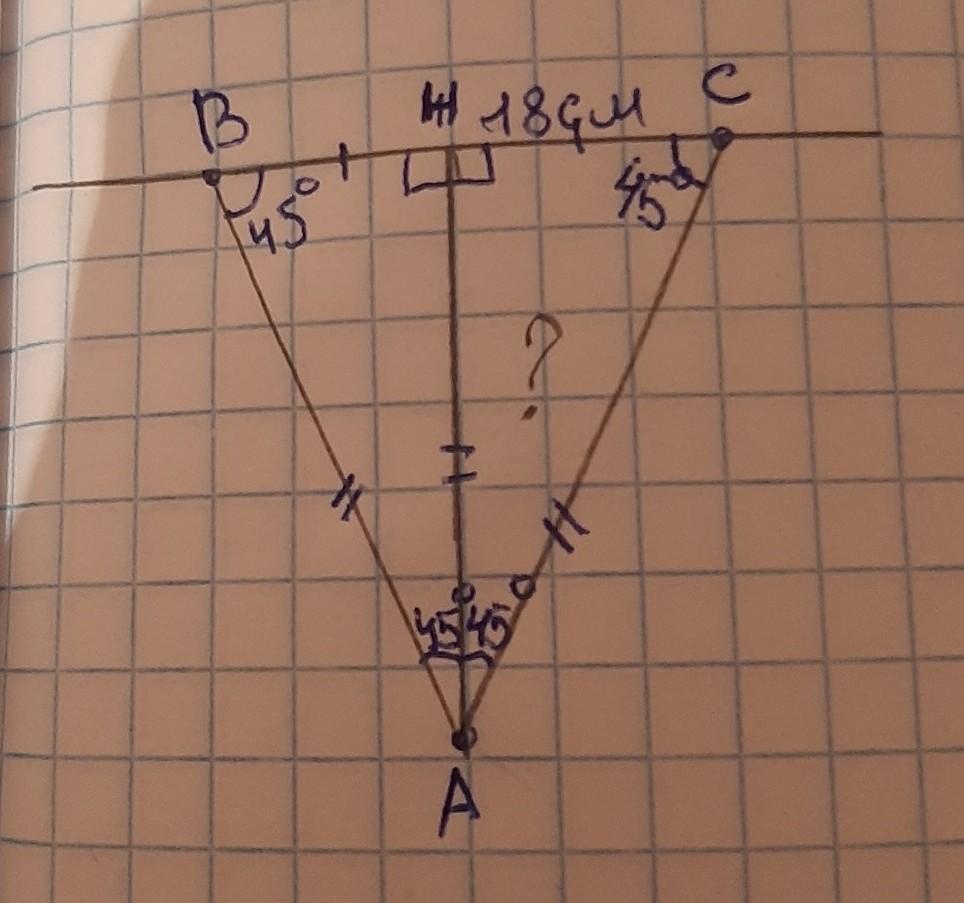 B H 18 дм C
45° 45°
?
45° 45°
A